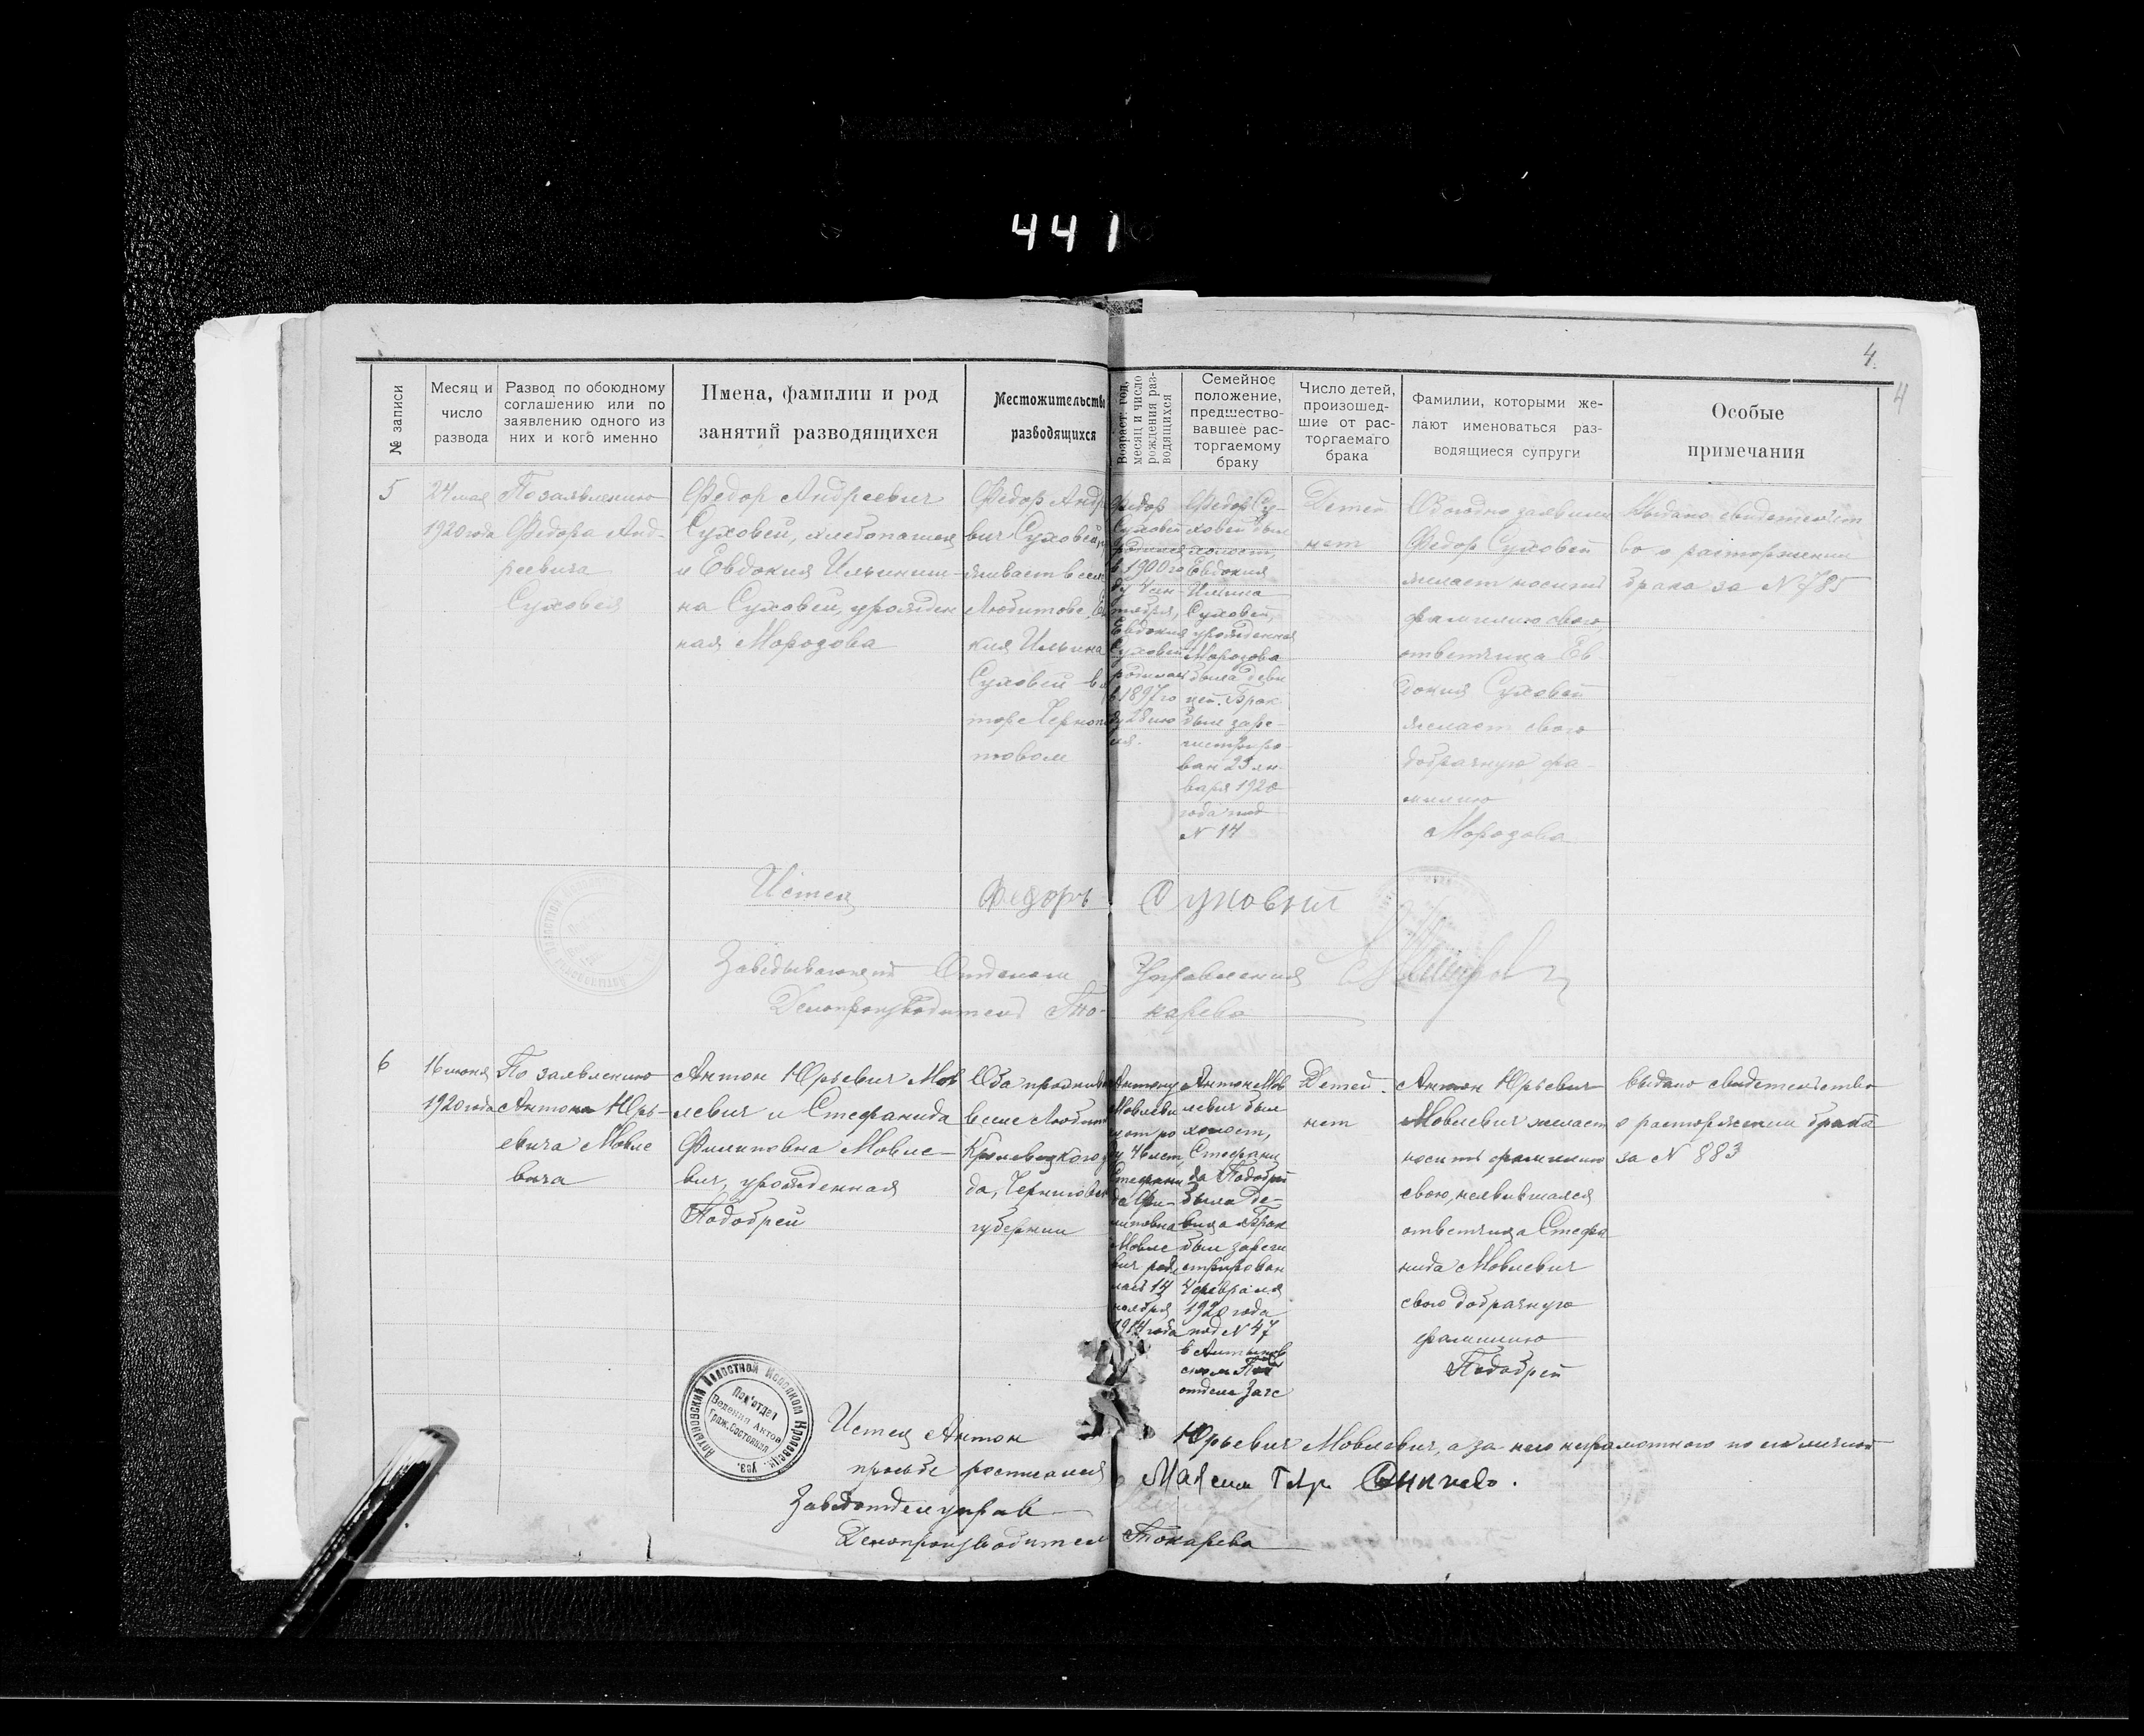 441
4
4
№ записи
Месяц и
число
развода
Развод по обоюдному
соглашению или по
заявлению одного из
них и кого именно
Имена, фамилии и род
занятий разводящихся
Местожительство
разводящихся
Возраст: год,
месяц и число
рождения раз-
водящихся
Семейное
положение,
предшество-
вавшее рас-
торгаемому
браку
Число детей,
произошед-
шие от рас-
торгаемаго
брака
Фамилии, которыми же-
лают именоваться раз-
водящиеся супруги
Особые
примечания
5
24 мая
1920 года
По заявлению
Федора Анд-
реевича
Суховея
Федор Андреевич
Суховей, хлебопашец
и Евдокия Ильинич-
на Суховей, урожден
ная Морозова
Федор Андре
вич Суховей,
живает в селе
Любитове, Ев
кия Ильина
Суховей в
торе
товом
Федор
Суховей
родился
в 1900 го
ду 4 сен-
тября,
Евдокия
Суховей
родилась
в 1897 го
ду 28 ию
ля.
Федор Су-
ховей был
холост,
Евдокия
Ильина
Суховей,
урожденная
Морозова
была деви
цей. Брак
был заре-
гистриро-
ван 25 ян-
варя 1920
года под
N 14
Детей
нет
заявили
Федор Суховей
желает носить
фамилию свою,
ответчица Ев
докия Суховей
желает свою
добрачную фа-
милию
Морозова
Выдано свидетельст
во о расторжении
брака за N 785
Истец Федоръ Суховий
Заведывающий Отделом Управления
Делопроизводитель То- карева
6
16 июня
1920 года
По заявлению
Антона Юрь-
евича Мовле
вича
Антон Юрьевич Мов
левич и Стефанида
Филиповна Мовле-
вич, урожденная
Подобрей
Оба прожива
в селе Любит
Кролевецкого у
да, Чернигов
губернии
Антону
Мовлеви
чу 46 лет,
Стефани
да Фи-
липовна
Мовле
вич роди
лась 14
ноября
года
Антон Мов
левич был
холост,
Стефани
да Подобрей
была де-
вица Брак
был зареги
стрирован
4 февраля
1920 года
под N 47
в Алтынов
ском Под
отделе Загс
Детей
нет
Антон Юрьевич
Мовлевич желает
носить фамилию
свою, неявившаяся
ответчица Стефа
нида Мовлевич
свою добрачную
фамилию
Подобрей
Выдано свидетельство
о расторжении брака
за N 883
Алтыновский Волостной Исполком Кролевецк. уез.
Под'отдел
Ведения Актов
Граж. Состояния
Истец Антон Юрьевич Мовлевич, а за него неграмотного по его личной
просьбе расписался Максим
Завотделуправ
Делопроизводитель Токарева